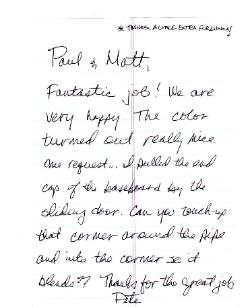 A LITTLE EXTRA FOR
Paul & Matt,
Fantastic job! We are
very happy. The color
turned out really nice
One request... I pulled the end
cap of the baseboard by the
sliding door. Can you touch up
that corner around the pipe
and into the corner so it
blends?? Thanks for the great job
Pete